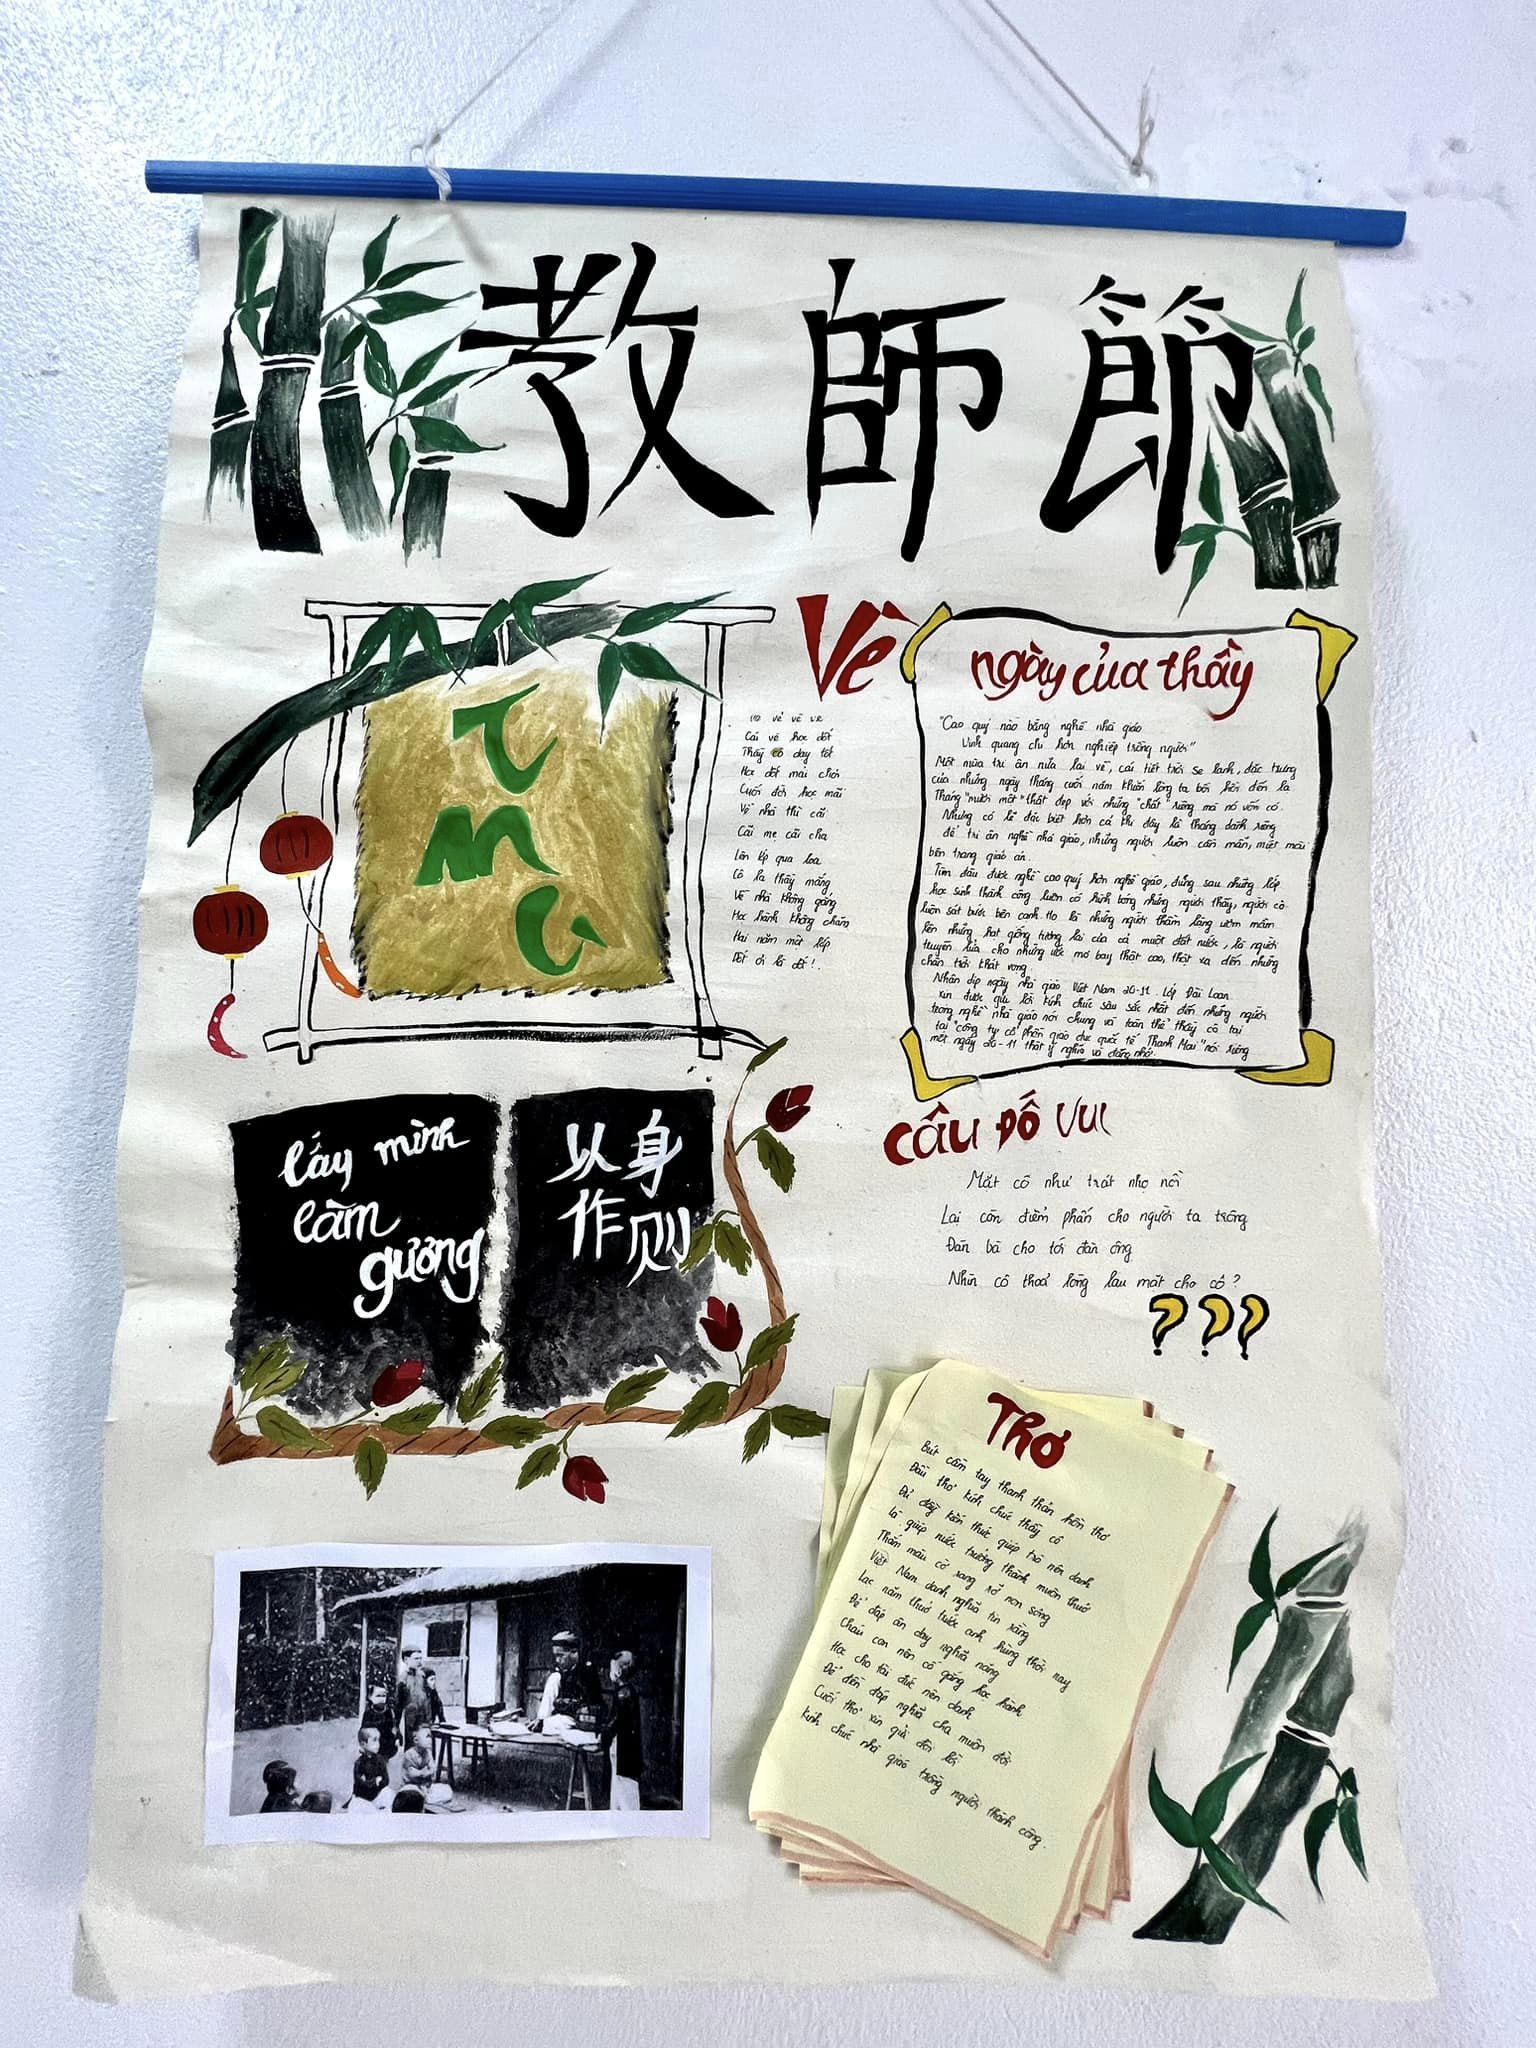 教師節
TMC
Vè
Ve vẻ vè ve
Cái vè học dốt
Thầy cô dạy tốt
Học dốt mải chơi
Cuốn đời học mãi
Về nhà thì cãi
Cãi mẹ cãi cha
Lên lớp qua loa
Cô la thầy mắng
Về nhà không gắng
Học hành không chăm
Hai năm một lớp
Dốt ơi là dốt!.
ngày của thầy
"Cao quý nào bằng nghề nhà giáo
Vinh quang chi hơn nghiệp trồng người"
Một mùa tri ân nữa lại về, cái tiết trời se lạnh, đặc trưng
của những ngày tháng cuối năm khiến lòng ta bồi hồi đến lạ
Tháng "mười một" thật đẹp với những "chất" riêng mà nó vốn có.
Nhưng có lẽ đặc biệt hơn cả khi đây là tháng dành riêng
để tri ân nghề nhà giáo, những người luôn cần mẫn, miệt mài
bên trang giáo án.
Tìm đâu được nghề cao quý hơn nghề giáo, đứng sau những lớp
học sinh thành công luôn có hình bóng những người thầy, người cô
luôn sát bước bên cạnh. Họ là những người thầm lặng ươm mầm
lên những hạt giống tương lai của cả một đất nước, là người
truyền lửa cho những ước mơ bay thật cao, thật xa đến những
chân trời khát vọng.
Nhân dịp ngày nhà giáo Việt Nam 20-11 Lớp Đài Loan
xin được gửi lời kính chúc sâu sắc nhất đến những người
trong nghề nhà giáo nói chung và toàn thể thầy cô tại
tại "công ty cổ phần giáo dục quốc tế Thanh Mai" nói riêng
một ngày 20-11 thật ý nghĩa và đáng nhớ.
lấy mình
làm
gương
以身
作则
câu Đố vui
Mặt cô như trát nhọ nồi
Lại còn điểm phấn cho người ta trông
Đàn bà cho tới đàn ông
Nhìn cô thoả lòng lau mặt cho cô?
???
Thơ
Bút cầm tay thanh thản hồn thơ
Đầu thơ kính chúc thầy cô
Đủ đầy kiến thức giúp trò nên danh
Là giúp nước trưởng thành muôn thuở
Thắm màu cờ rạng rỡ non sông
Việt Nam danh nghĩa tin rằng
Lạc năm thuở trước anh hùng thời nay
Để đáp ân dạy nghĩa nặng
Cháu con nên cố gắng học hành
Học cho tài đức nên danh
Để đền đáp nghĩa cha muôn đời
Cuối thơ xin gửi đôi lời
Kính chúc nhà giáo trồng người thành công.